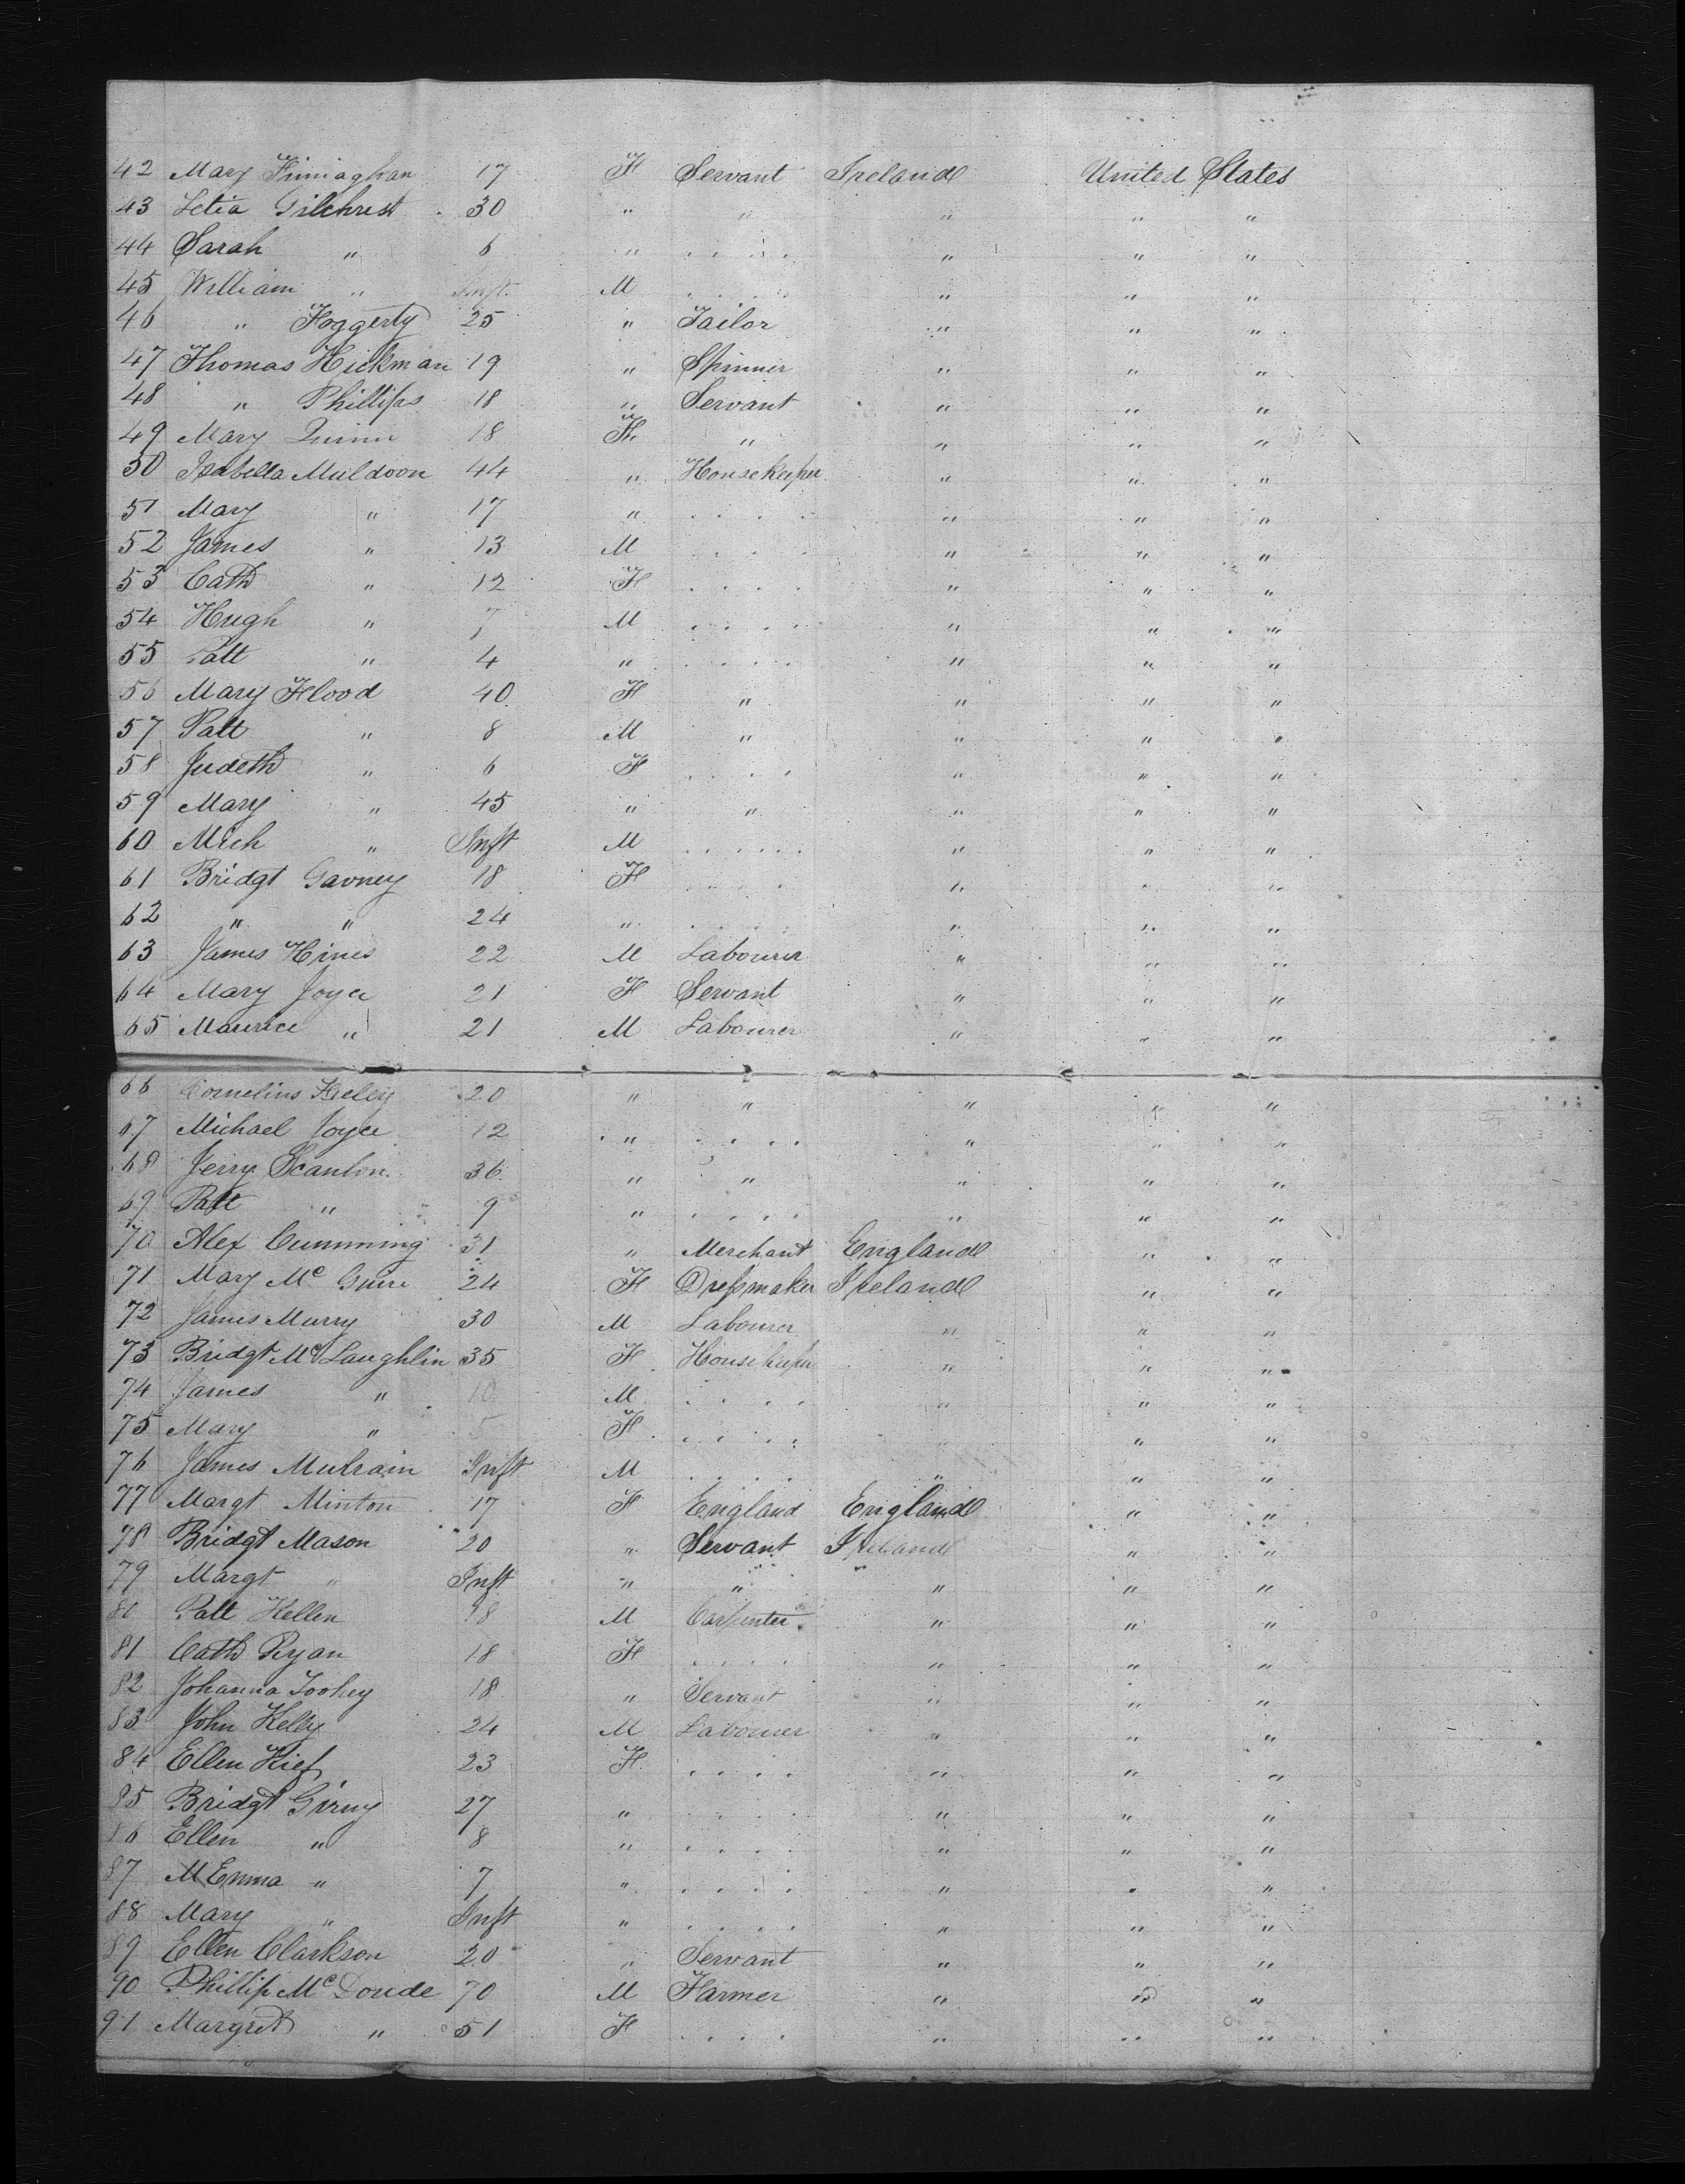 42 Mary Finnaghan 17 F Servant Ireland United States
43 Letia Gilchrist 30 " " " " "
44 Sarah " 6 " . . . . " " "
45 William " Inft. M . . . . " " "
46 " Foggerty 25 " Tailor " " "
47 Thomas Hickman 19 " Spinner " " "
48 " Phillips 18 " Servant " " "
49 Mary Quinn 18 F. " " " "
50 Isabella Muldoon 44 " Housekeeper " " "
51 Mary " 17 " . . . . " " "
52 James " 13 M . . . . " " "
53 Cath " 12 F . . . . " " "
54 Hugh " 7 M . . . . " " "
55 Patt " 4 " . . . . " " "
56 Mary Flood 40 F " " " "
57 Patt " 8 M " " " "
58 Judeth " 6 F . . . . " " "
59 Mary " 45 " " " " "
60 Mich " Inft M . . . . . " " "
61 Bridgt Gavney 18 F . . . . " " "
62 " " 24 " . . . . " " "
63 James Hines 22 M Labourer " " "
64 Mary Joyce 21 F Servant " " "
65 Maurice " 21 M Labourer " " "
66 Cornelius 20 " " " " "
67 Michael Joyce 12 " . . . . " " "
68 Jerry Scanlon 36 " " " " "
69 Patt " 9 " . . . . " " "
70 Alex Cummming 31 " Merchant England " "
71 Mary Mc Guire 24 F Dressmaker Ireland " "
72 James Murry 30 M Labourer " " "
73 Bridgt Mc Laughlin 35 F Housekeeper " " "
74 James " 10 M . . . . " " "
75 Mary " 5 F . . . . " " "
76 James Mulrain Inft M . . . . " " "
77 Margt Minton 17 F England England " "
78 Bridgt Mason 20 " Servant Ireland " "
79 Margt " Inft " " " " "
80 Patt Kellen 18 M Carpenter " " "
81 Cath Ryan 18 F . . . . " " "
82 Johanna Toohey 18 " Servant " " "
83 John Kelly 24 M Labourer " " "
84 Ellen Kief 23 F . . . . " " "
85 Bridgt 27 " . . . . " " "
86 Ellen " 8 " . . . . " " "
87 M Emma " 7 " . . . . " " "
88 Mary " Inft " . . . . " " "
89 Ellen Clarkson 20 " Servant " " "
90 Phillip Mc Doude 70 M Farmer " " "
91 Margret " 51 F . . . . " " "